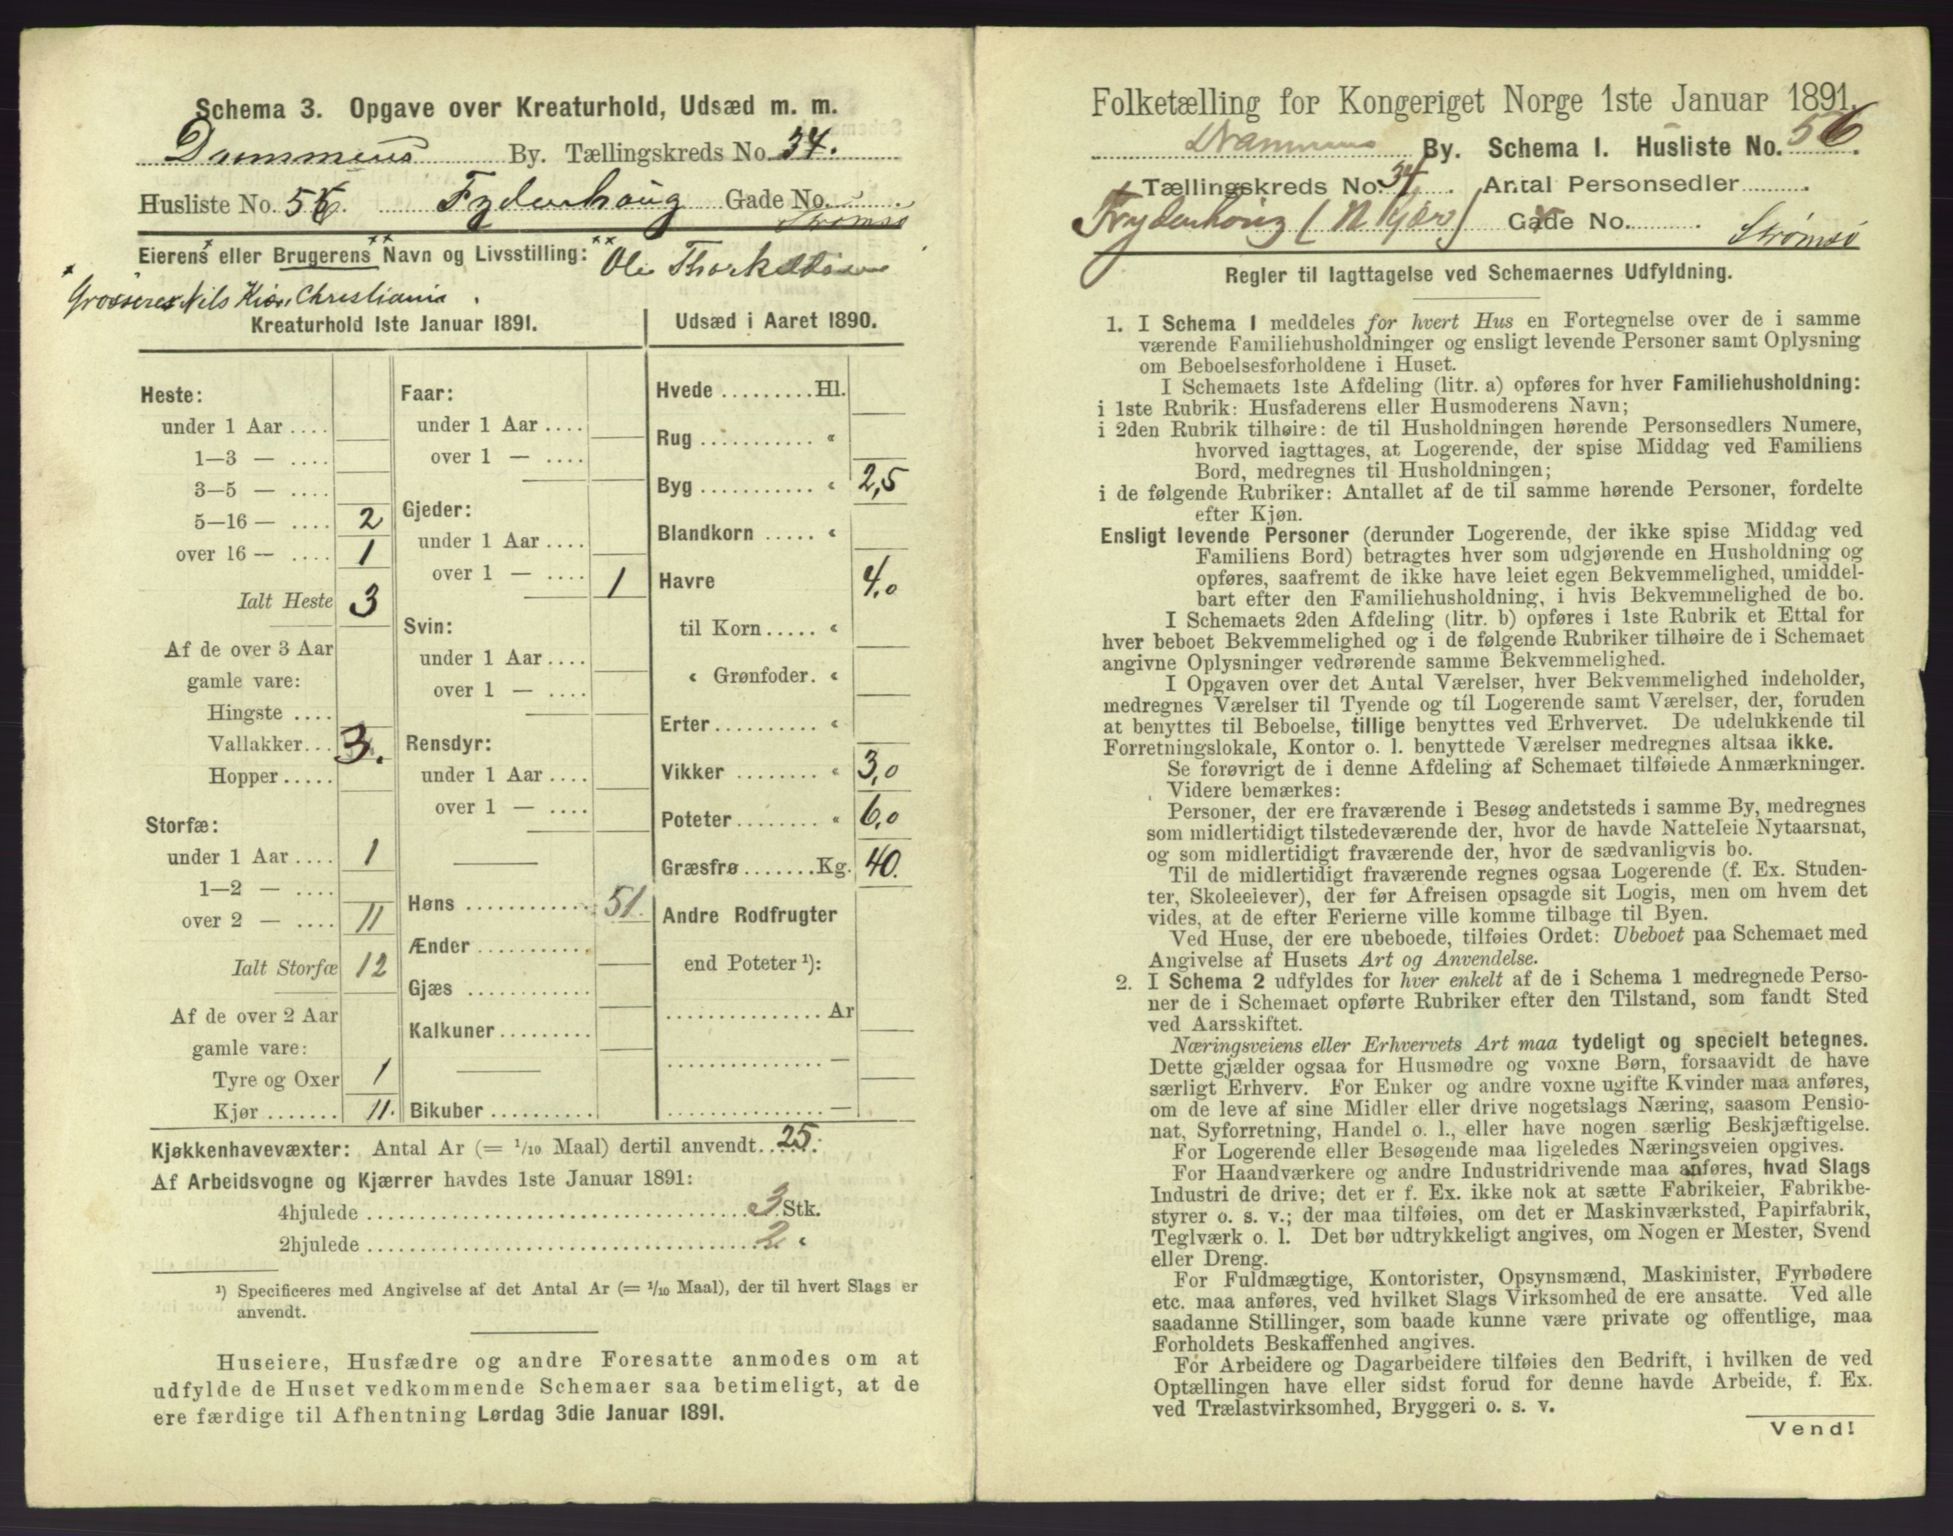 Schema 3. Opgave over Kreaturhold, Udsæd m. m.
Drammens By. Tællingskreds No. 34.
Husliste No. 56. Frydenhaug Gade No.
Strømsø
Eierens* eller Brugerens** Navn og Livsstilling: ** Ole Thorkildsen
* Grosserer Nils Kiær, Christiania.
Kreaturhold 1ste Januar 1891.
Heste:
under 1 Aar ....
1—3 — ....
3—5 — ....
5—16 — .... 2
over 16 — .... 1
Ialt Heste 3
Af de over 3 Aar
gamle vare:
Hingste ....
Vallakker... 3.
Hopper.....
Storfæ:
under 1 Aar.... 1
1—2 — ....
over 2 — .... 11
Ialt Storfæ 12
Af de over 2 Aar
gamle vare:
Tyre og Oxer 1
Kjør....... 11.
Faar:
under 1 Aar ....
over 1 — ....
Gjeder:
under 1 Aar ....
over 1 — .... 1
Svin:
under 1 Aar....
over 1 — ....
Rensdyr:
under 1 Aar....
over 1 — ....
Høns ............ 51.
Ænder ...........
Gjæs ............
Kalkuner .........
Bikuber ..........
Udsæd i Aaret 1890.
Hvede .........Hl.
Rug ........... «
Byg ........... « 2,5
Blandkorn ..... «
Havre 4,0
til Korn..... «
« Grønfoder. «
Erter.......... «
Vikker ........ « 3,0
Poteter........ « 6,0
Græsfrø.......Kg. 40.
Andre Rodfrugter
end Poteter ¹):
...............Ar
............... —
............... —
Kjøkkenhavevæxter: Antal Ar (= 1/10 Maal) dertil anvendt.. 25.
Af Arbeidsvogne og Kjærrer havdes 1ste Januar 1891:
4hjulede ........................................ 3 Stk.
2hjulede ........................................ 2 «
¹) Specificeres med Angivelse af det Antal Ar (= 1/10 Maal), der til hvert Slags er
anvendt.
Huseiere, Husfædre og andre Foresatte anmodes om at
udfylde de Huset vedkommende Schemaer saa betimeligt, at de
ere færdige til Afhentning Lørdag 3die Januar 1891.
Folketælling for Kongeriget Norge 1ste Januar 1891.
Drammens By. Schema I. Husliste No. 56.
Tællingskreds No. 34. Antal Personsedler .
Frydenhoug (N Kjær) Gade No. . Strømsø
Regler til Iagttagelse ved Schemaernes Udfyldning.
1. I Schema 1 meddeles for hvert Hus en Fortegnelse over de i samme
værende Familiehusholdninger og ensligt levende Personer samt Oplysning
om Beboelsesforholdene i Huset.
I Schemaets 1ste Afdeling (litr. a) opføres for hver Familiehusholdning:
i 1ste Rubrik: Husfaderens eller Husmoderens Navn;
i 2den Rubrik tilhøire: de til Husholdningen hørende Personsedlers Numere,
hvorved iagttages, at Logerende, der spise Middag ved Familiens
Bord, medregnes til Husholdningen;
i de følgende Rubriker: Antallet af de til samme hørende Personer, fordelte
efter Kjøn.
Ensligt levende Personer (derunder Logerende, der ikke spise Middag ved
Familiens Bord) betragtes hver som udgjørende en Husholdning og
opføres, saafremt de ikke have leiet egen Bekvemmelighed, umiddel-
bart efter den Familiehusholdning, i hvis Bekvemmelighed de bo.
I Schemaets 2den Afdeling (litr. b) opføres i 1ste Rubrik et Ettal for
hver beboet Bekvemmelighed og i de følgende Rubriker tilhøire de i Schemaet
angivne Oplysninger vedrørende samme Bekvemmelighed.
I Opgaven over det Antal Værelser, hver Bekvemmelighed indeholder,
medregnes Værelser til Tyende og til Logerende samt Værelser, der, foruden
at benyttes til Beboelse, tillige benyttes ved Erhvervet. De udelukkende til
Forretningslokale, Kontor o. l. benyttede Værelser medregnes altsaa ikke.
Se forøvrigt de i denne Afdeling af Schemaet tilføiede Anmærkninger.
Videre bemærkes:
Personer, der ere fraværende i Besøg andetsteds i samme By, medregnes
som midlertidigt tilstedeværende der, hvor de havde Natteleie Nytaarsnat,
og som midlertidigt fraværende der, hvor de sædvanligvis bo.
Til de midlertidigt fraværende regnes ogsaa Logerende (f. Ex. Studen-
ter, Skoleelever), der før Afreisen opsagde sit Logis, men om hvem det
vides, at de efter Ferierne ville komme tilbage til Byen.
Ved Huse, der ere ubeboede, tilføies Ordet: Ubeboet paa Schemaet med
Angivelse af Husets Art og Anvendelse.
2. I Schema 2 udfyldes for hver enkelt af de i Schema 1 medregnede Perso-
ner de i Schemaet opførte Rubriker efter den Tilstand, som fandt Sted
ved Aarsskiftet.
Næringsveiens eller Erhvervets Art maa tydeligt og specielt betegnes.
Dette gjælder ogsaa for Husmødre og voxne Børn, forsaavidt de have
særligt Erhverv. For Enker og andre voxne ugifte Kvinder maa anføres,
om de leve af sine Midler eller drive nogetslags Næring, saasom Pensio-
nat, Syforretning, Handel o. l., eller have nogen særlig Beskjæftigelse.
For Logerende eller Besøgende maa ligeledes Næringsveien opgives.
For Haandværkere og andre Industridrivende maa anføres, hvad Slags
Industri de drive; det er f. Ex. ikke nok at sætte Fabrikeier, Fabrikbe-
styrer o. s. v.; der maa tilføies, om det er Maskinværksted, Papirfabrik,
Teglværk o. l. Det bør udtrykkeligt angives, om Nogen er Mester, Svend
eller Dreng.
For Fuldmægtige, Kontorister, Opsynsmænd, Maskinister, Fyrbødere
etc. maa anføres, ved hvilket Slags Virksomhed de ere ansatte. Ved alle
saadanne Stillinger, som baade kunne være private og offentlige, maa
Forholdets Beskaffenhed angives.
For Arbeidere og Dagarbeidere tilføies den Bedrift, i hvilken de ved
Optællingen have eller sidst forud for denne havde Arbeide, f. Ex.
ved Trælastvirksomhed, Bryggeri o. s. v.
Vend!